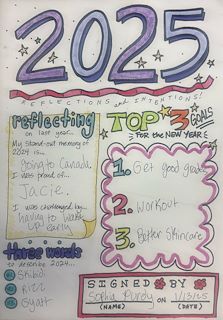 2025
REFLECTIONS and INTENTIONS!
reflecting
on last year...
My stand-out memory of
2024 is...
going to Canada.
I was proud of...
Jacie.
I was challenged by...
having to wake
up early
three words
to describe 2024...
#1
#2 Rizz
#3 Gyatt
TOP 3 GOALS
FOR THE NEW YEAR
1. Get good grades
2. Workout
3. Better Skincare
SIGNED BY
Sophia on 1/13/25
(NAME) (DATE)